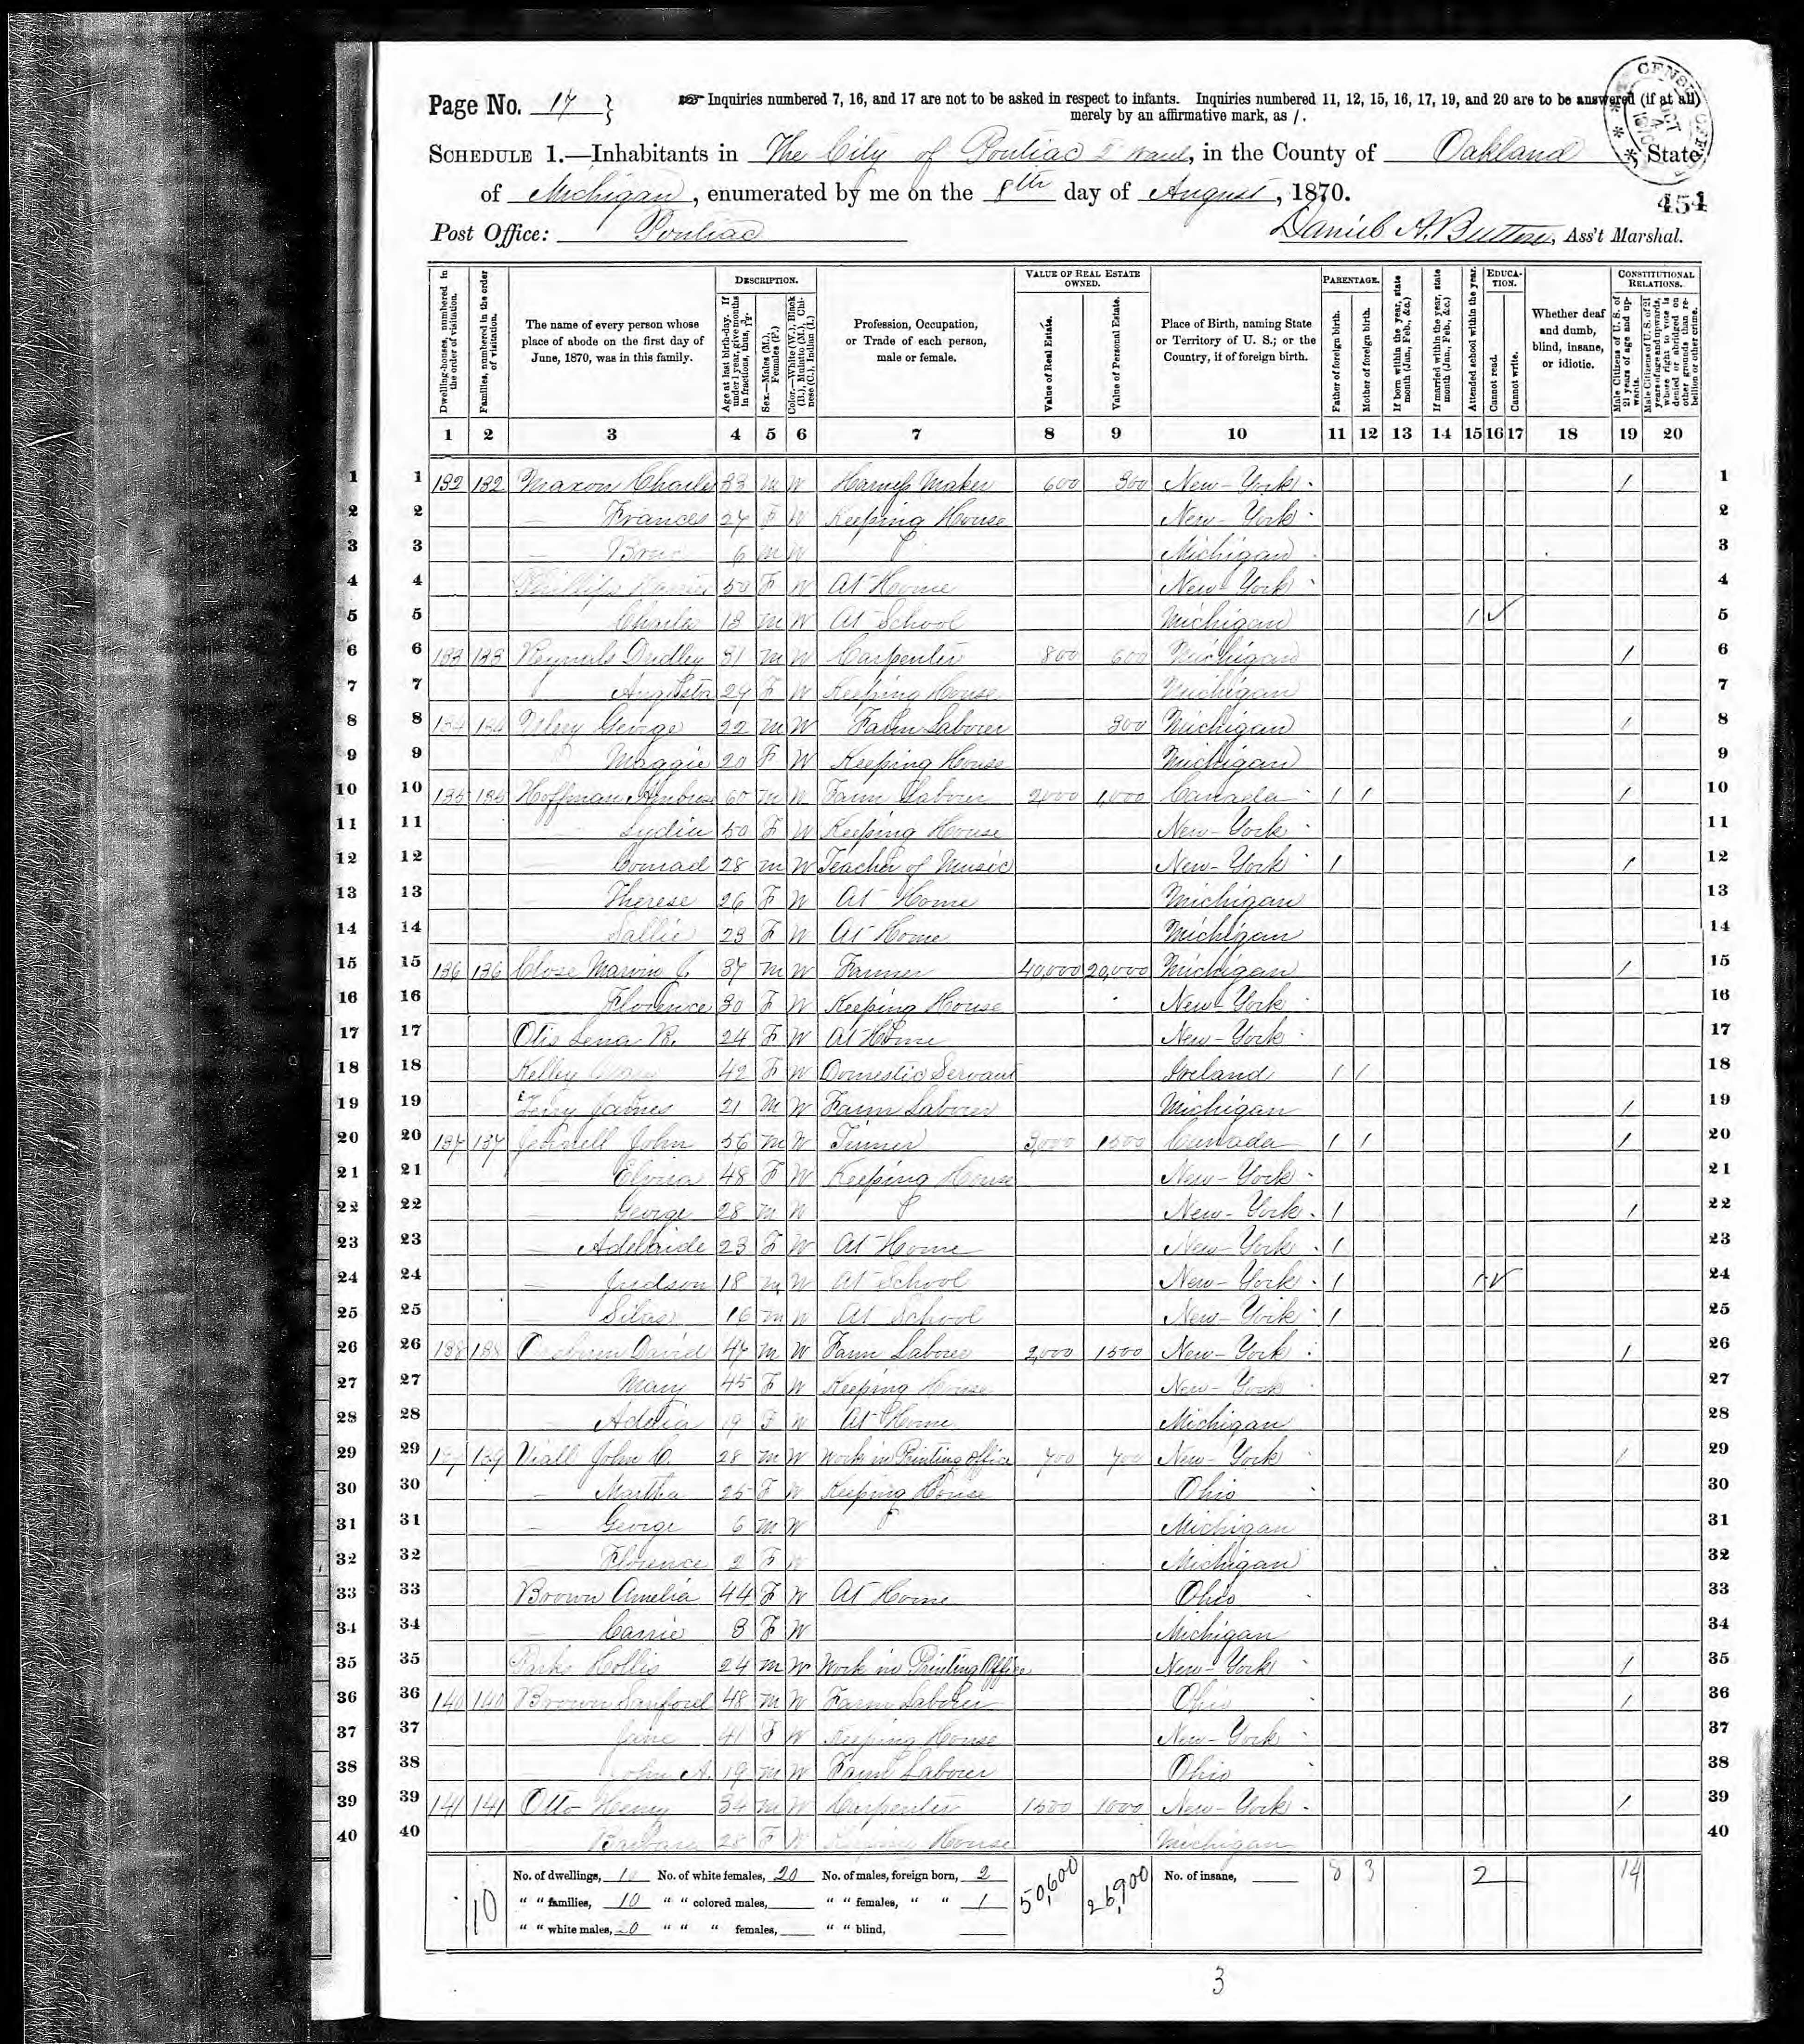 Page No. 17 }
Inquiries numbered 7, 16, and 17 are not to be asked in respect to infants. Inquiries numbered 11, 12, 15, 16, 17, 19, and 20 are to be answered (if at all)
merely by an affirmative mark, as /.
SCHEDULE 1.—Inhabitants in The City of Pontiac Ward, in the County of Oakland, State
of Michigan, enumerated by me on the 8th day of August, 1870.
454
Post Office: Pontiac
Daniel A. , Ass't Marshal.
Dwelling-houses, numbered in the order of visitation.
Families, numbered in the order of visitation.
The name of every person whose place of abode on the first day of June, 1870, was in this family.
DESCRIPTION.
Age at last birth-day. If under 1 year, give months in fractions, thus,
Sex.—Males (M.), Females (F.)
Color.—White (W.), Black (B.), Mulatto (M.), Chinese (C.), Indian (I.)
Profession, Occupation, or Trade of each person, male or female.
VALUE OF REAL ESTATE OWNED.
Value of Real Estate.
Value of Personal Estate.
Place of Birth, naming State or Territory of U. S.; or the Country, if of foreign birth.
PARENTAGE.
Father of foreign birth.
Mother of foreign birth.
If born within the year, state month (Jan., Feb., &c.)
If married within the year, state month (Jan., Feb., &c.)
Attended school within the year.
EDUCATION.
Cannot read.
Cannot write.
Whether deaf and dumb, blind, insane, or idiotic.
CONSTITUTIONAL RELATIONS.
Male Citizens of U. S. of 21 years of age and upwards.
Male Citizens of U. S. of 21 years of age and upwards, whose right to vote is denied or abridged on other grounds than rebellion or other crime.
1 2 3 4 5 6 7 8 9 10 11 12 13 14 15 16 17 18 19 20
1 132 132 Maxon Charles 33 M W Harness Maker 600 300 New-York / 1
2 Frances 27 F W Keeping House New-York 2
3 6 M W Michigan 3
4 Phillips 50 F W At Home New-York 4
5 Charles 13 M W At School Michigan / ✓ 5
6 133 133 Reynols Dudley 31 M W Carpenter 800 600 Michigan / 6
7 Augusta 29 F W Keeping House Michigan 7
8 134 134 George 22 M W Farm Laborer 300 Michigan / 8
9 Maggie 20 F W Keeping House Michigan 9
10 135 135 Hoffman Ambrose 60 M W Farm Laborer 2,000 1,000 Canada / / / 10
11 Lydia 50 F W Keeping House New-York 11
12 Conrad 28 M W Teacher of Music New-York / / 12
13 Therese 26 F W At Home Michigan 13
14 Sallie 23 F W At Home Michigan 14
15 136 136 Close Marvin C. 37 M W Farmer 40,000 20,000 Michigan / 15
16 Florence 30 F W Keeping House New-York 16
17 Otis Lena R. 24 F W At Home New-York 17
18 Kelley 42 F W Domestic Servant Ireland / / 18
19 Terry James 21 M W Farm Laborer Michigan / 19
20 137 137 John 56 M W Tinner 3,000 1500 Canada / / / 20
21 Elvira 48 F W Keeping House New-York 21
22 George 28 M W New-York / / 22
23 Adelaide 23 F W At Home New-York / 23
24 Judson 18 M W At School New-York / / ✓ 24
25 Silas 16 M W At School New-York / 25
26 138 138 David 47 M W Farm Laborer 2,000 1500 New-York / 26
27 Mary 45 F W Keeping House New-York 27
28 Adelia 19 F W At Home Michigan 28
29 139 139 Viall John O. 28 M W Work in Printing Office 700 700 New-York / 29
30 Martha 25 F W Keeping House Ohio 30
31 George 6 M W Michigan 31
32 Florence 2 F W Michigan 32
33 Brown Amelia 44 F W At Home Ohio 33
34 Carrie 8 F W Michigan 34
35 Parks Hollis 24 M W Work in Printing Office New-York / 35
36 140 140 Brown Sanford 48 M W Farm Laborer Ohio / 36
37 Jane 41 F W Keeping House New-York 37
38 John A. 19 M W Farm Laborer Ohio 38
39 141 141 Otto Henry 34 M W Carpenter 1500 1000 New-York / 39
40 Barbara 28 F W Keeping House Michigan 40
No. of dwellings, 10 No. of white females, 20 No. of males, foreign born, 2 50,600 26,900 No. of insane, 8 3 2 14
10 " " families, 10 " " colored males, " " females, " " 1
" " white males, 20 " " " females, " " blind,
3